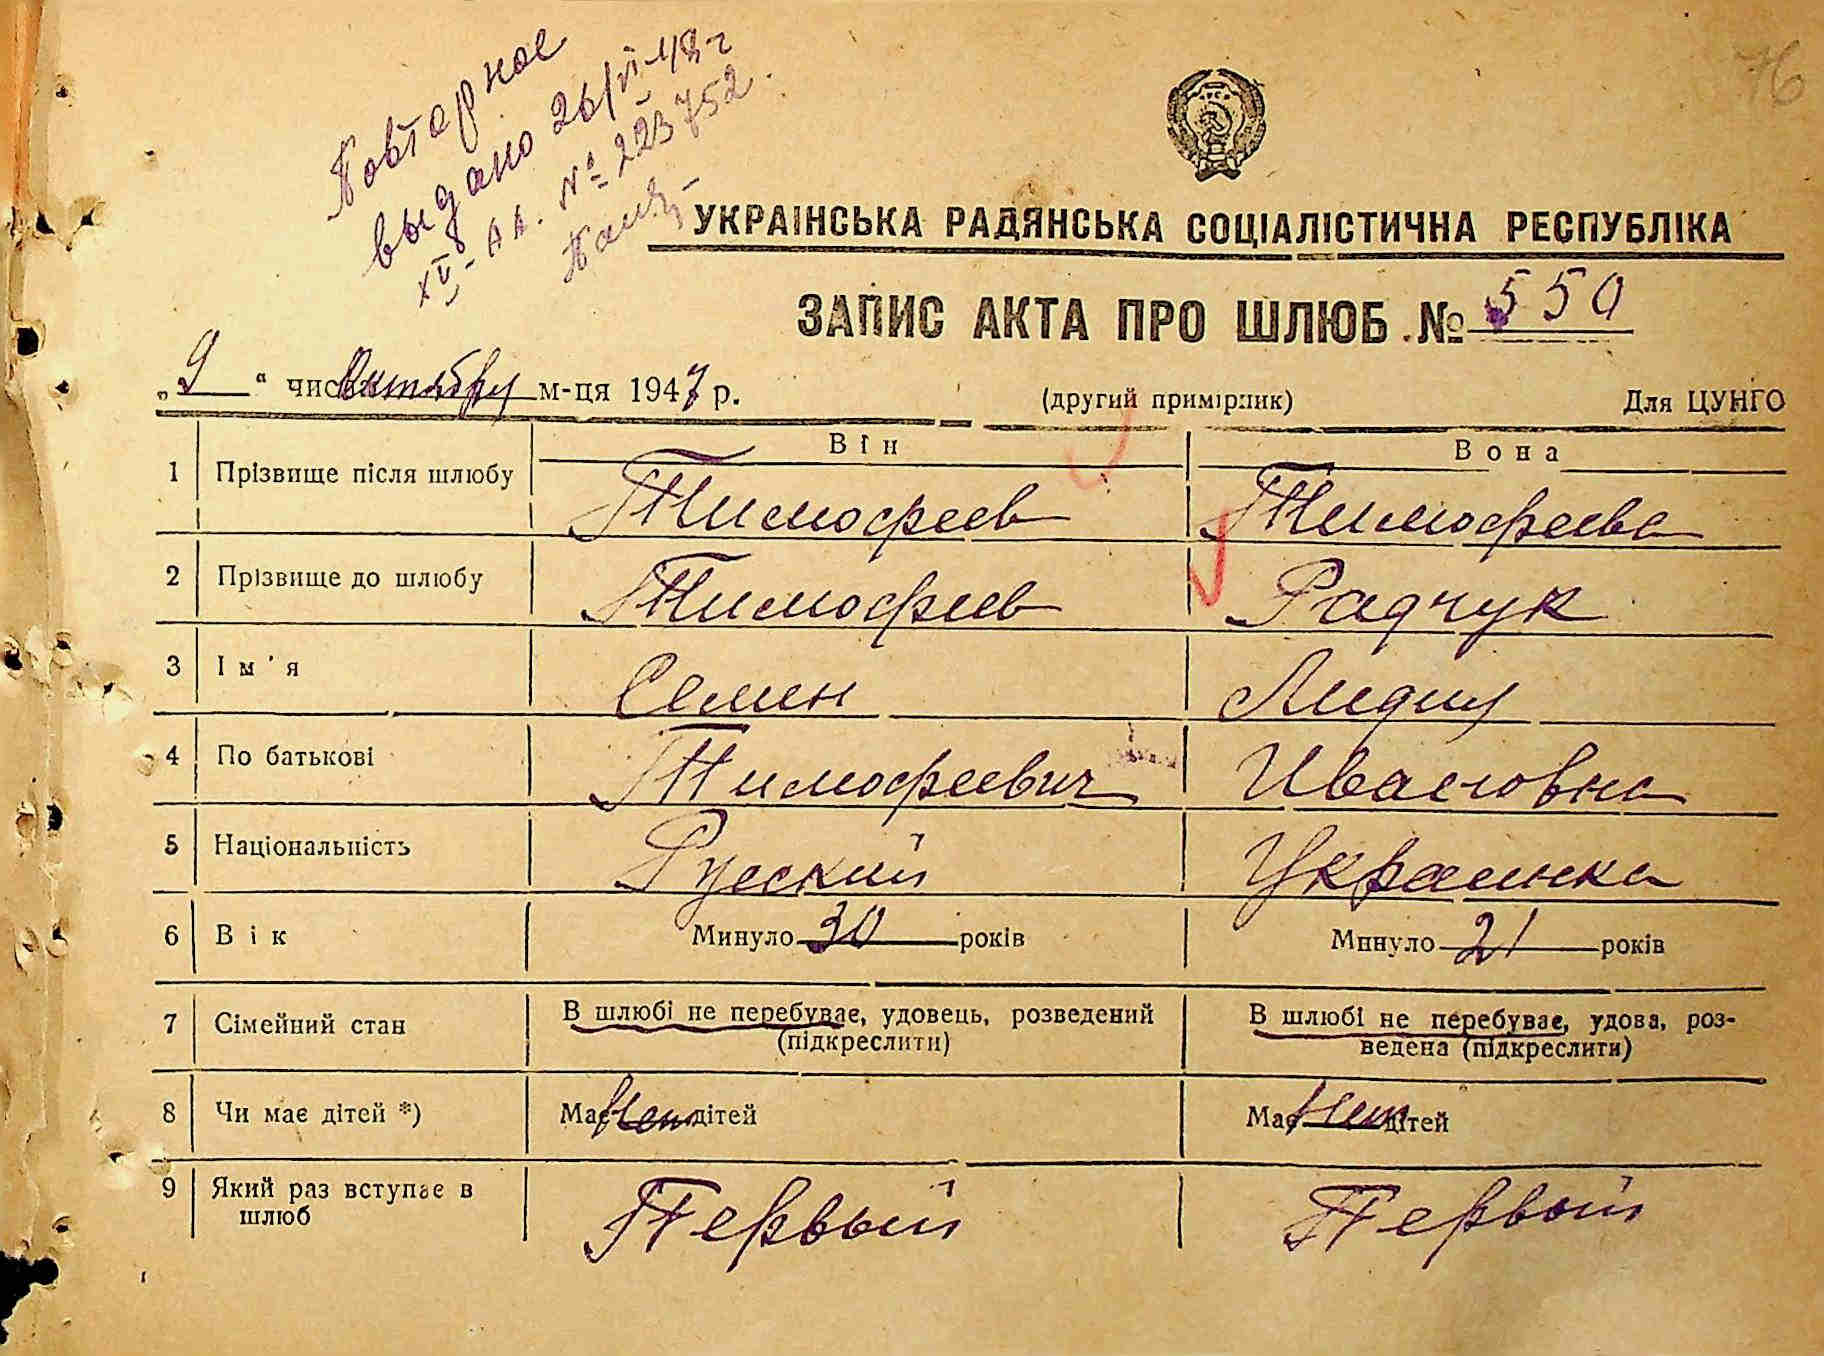 76
Повторное
выдано 26/VI-48 г
XVIII-АА. № 223752
УКРАЇНСЬКА РАДЯНСЬКА СОЦІАЛІСТИЧНА РЕСПУБЛІКА
ЗАПИС АКТА ПРО ШЛЮБ № 550
„9“ числа Октября м-ця 1947 р. (другий примірник) Для ЦУНГО
Він Вона
1 Прізвище після шлюбу Тимофеев Тимофеева
2 Прізвище до шлюбу Тимофеев Радчук
3 Ім'я Семен Лидия
4 По батькові Тимофеевич Ивановна
5 Національність Русский Украинка
6 Вік Минуло 30 років Минуло 21 років
7 Сімейний стан В шлюбі не перебуває, удовець, розведений В шлюбі не перебуває, удова, роз-
(підкреслити) ведена (підкреслити)
8 Чи має дітей *) Має Нет дітей Має Нет дітей
9 Який раз вступає в Первый Первый
шлюб